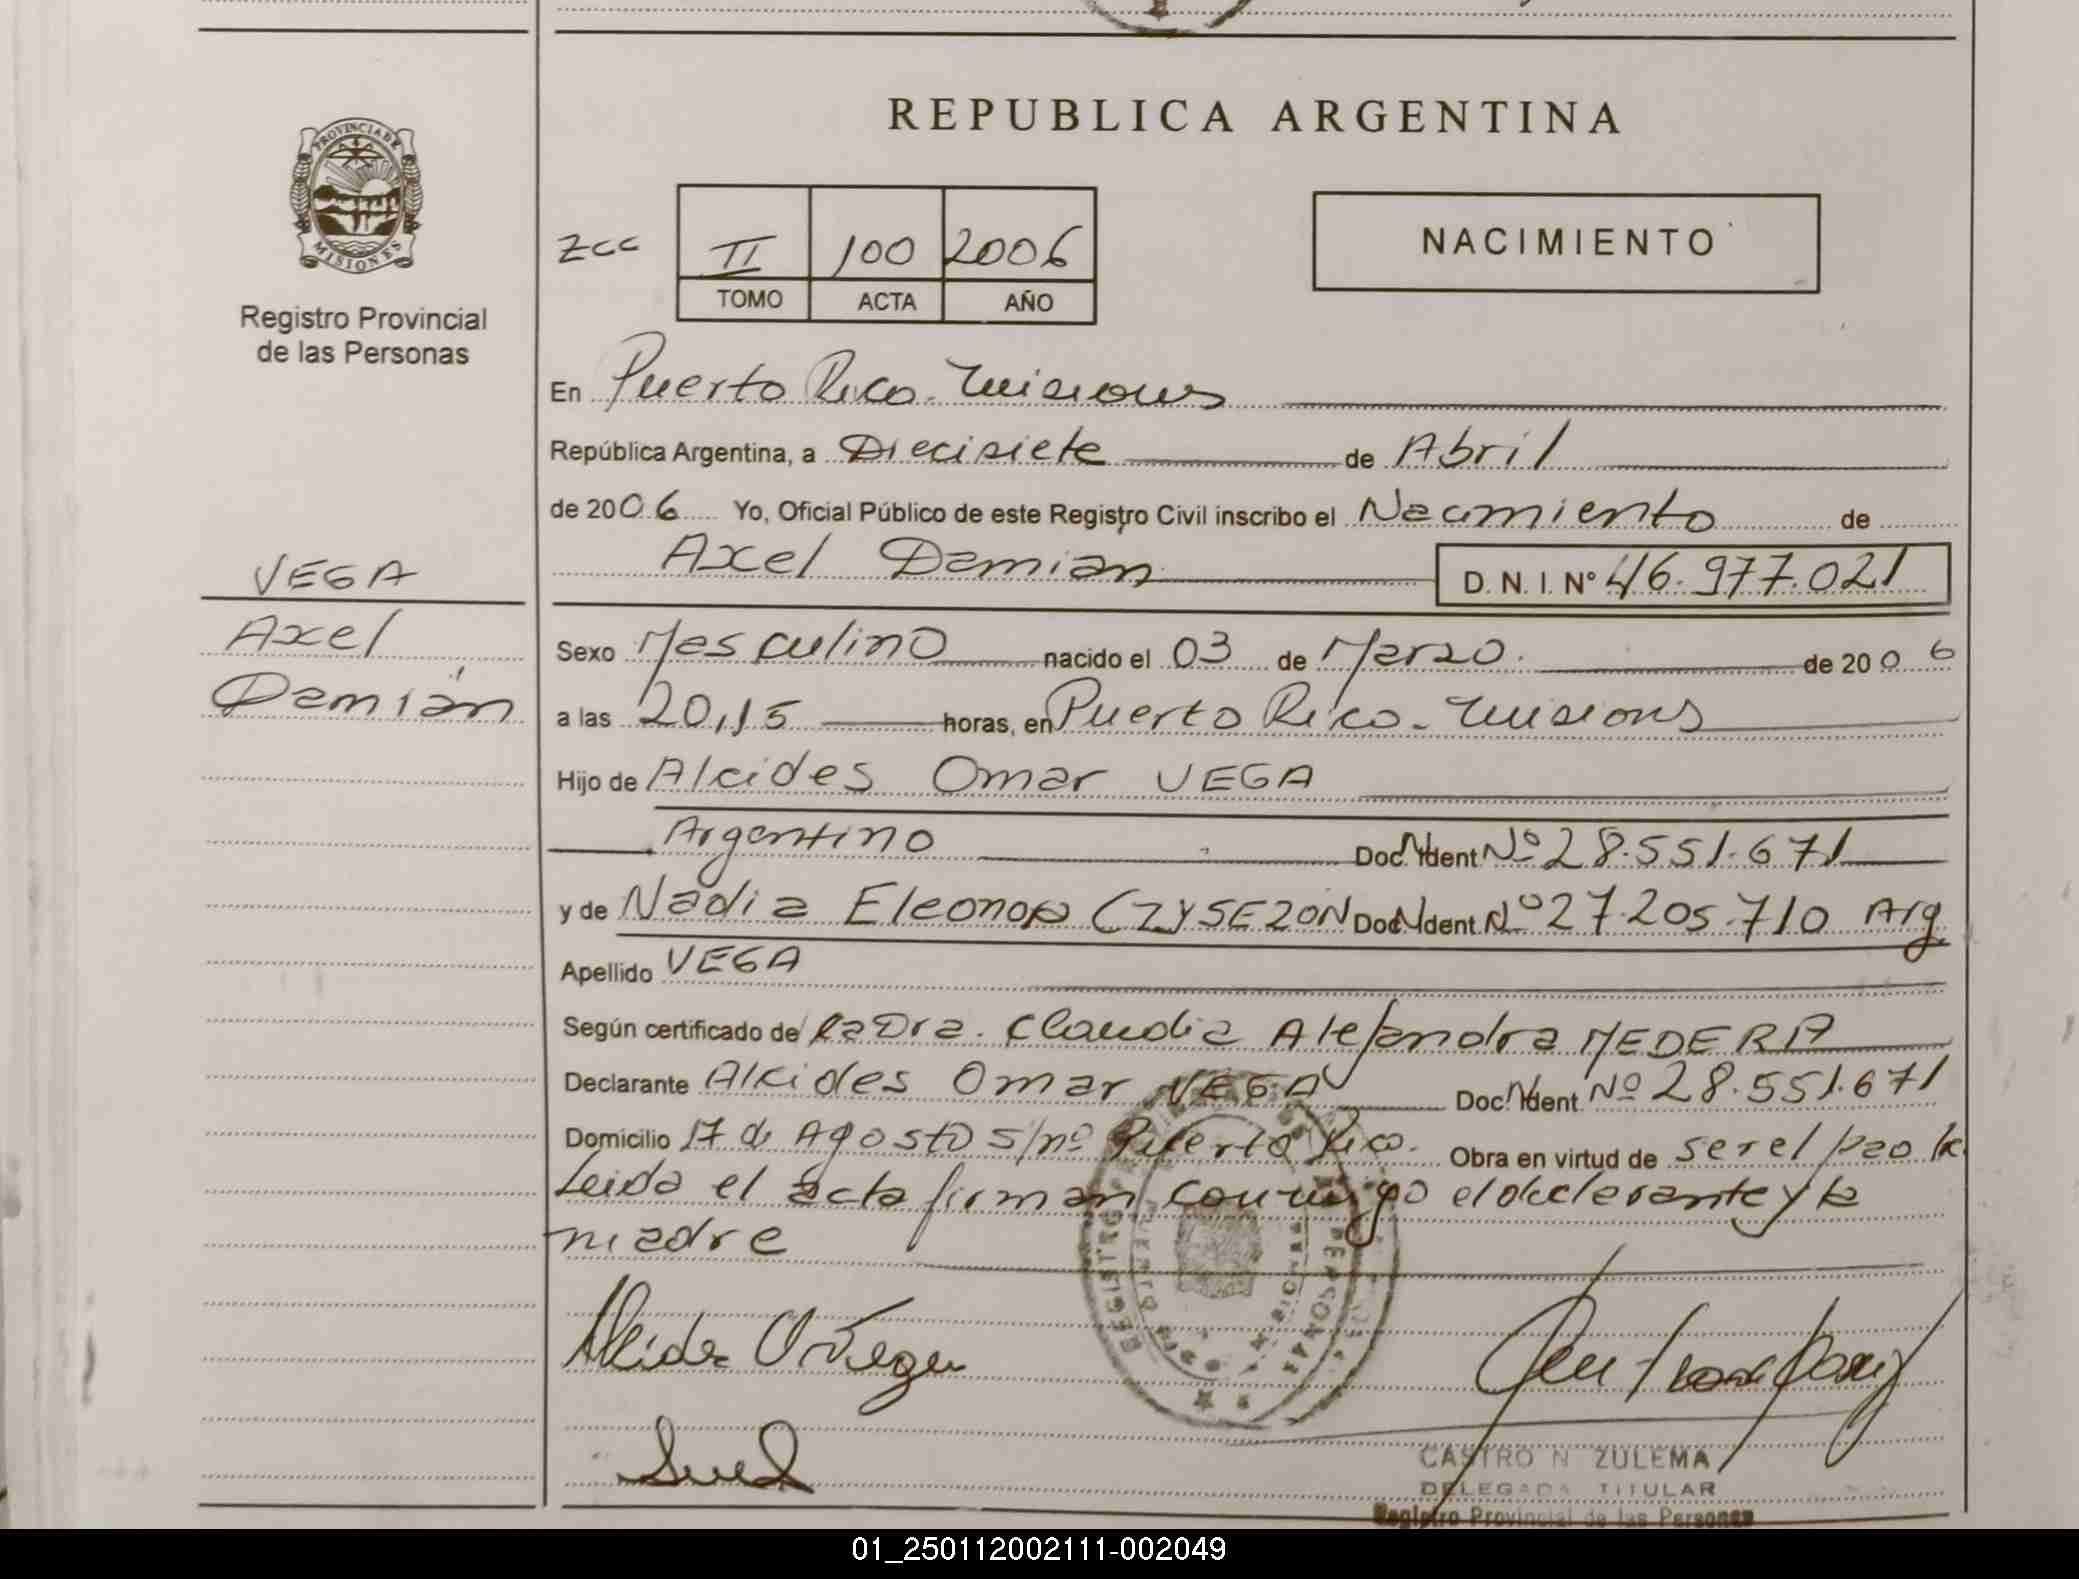 REPUBLICA ARGENTINA
PROVINCIA DE
MISIONES
Registro Provincial
de las Personas
zcc II 100 2006
TOMO ACTA AÑO
NACIMIENTO
En Puerto Rico - Misiones
República Argentina, a Diecisiete de Abril
de 2006 Yo, Oficial Público de este Registro Civil inscribo el Nacimiento de
Axel Damian D. N. I. Nº 46.977.021
VEGA
Axel
Damián
Sexo Masculino nacido el 03 de Marzo. de 2006
a las 20,15 horas, en Puerto Rico - Misiones
Hijo de Alcides Omar VEGA
Argentino Doc. Ident Nº 28.551.671
y de Nadia Eleonora CZYSEZON Doc. Ident. Nº 27.205.710 Arg
Apellido VEGA
Según certificado de la Dra. Claudia Alejandra MEDERA
Declarante Alcides Omar VEGA Doc. Ident. Nº 28.551.671
Domicilio 17 de Agosto s/nº Puerto Rico. Obra en virtud de ser el padre
Leida el acta firman conmigo el declarante y la
madre
REGISTRO PERSONAS
PUERTO RICO
CASTRO N ZULEMA
DELEGADA TITULAR
Registro Provincial de las Personas
01_250112002111-002049